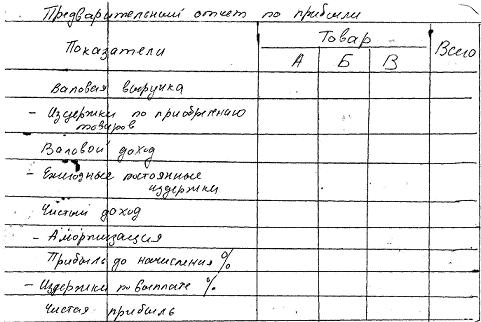 Предварительный отчет по прибыли
Показатели
Товар
Всего
А Б В
Валовая выручка
- Издержки по приобретению
товаров
Валовой доход
- Ежегодные постоянные
издержки
Чистый доход
- Амортизация
Прибыль до начисления %
- Издержки по выплате %
Чистая прибыль